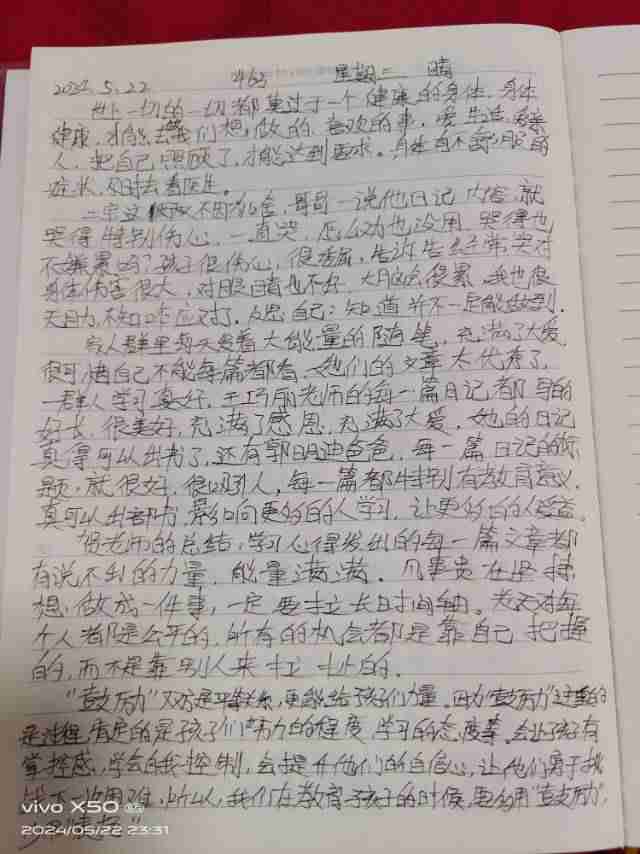 2024.5.22 463 星期三 晴
世上一切的一切都基于一个健康的身体.身体
健康,才能去我们想做的喜欢的事,爱生活,爱亲
人,把自己照顾了,才能达到要求。身体有不舒服的
症状,及时去看医生。
二宝这 不因为啥,哥哥一说他日记内容,就
哭得特别伤心,一直哭,怎么劝也没用,哭得也
不嫌累吗?孩子很伤心,很委屈,告诉 经常哭对
身体伤害很大,对眼睛也不好,大脑也会很累,我也很
无助,不知咋应对了.反思自己:知道并不一定能做到.
家人群里每天看着大能量的随笔,充满了大爱,
很可惜自己不能每篇都看,她们的文章太优秀了,
一群人学习真好,王巧丽老师的每一篇日记都写的
好长,很美好,充满了感恩,充满了大爱,她的日记
真得可以出书了,还有郭明迪爸爸,每一篇日记的标
题,就很好,很吸引人,每一篇都特别有教育意义,
真可以出部书,影响更多的人学习,让更多的人受益。
贺老师的总结,学习心得发出的每一篇文章都
有说不到的力量,能量满满。凡事贵在坚持,
想做成一件事,一定要拉长时间轴。老天对每
个人都是公平的,所有的机会都是靠自己把握
的,而不是靠别人来 的.
"鼓励"双方是平等关系,更能给予孩子们力量。因为"鼓励"注重的
是过程,肯定的是孩子们努力的程度,学习的态度等。会让孩子有
掌控感,学会自我控制,会提升他们的自信心,让他们勇于挑
战下一次困难,所以,我们在教育孩子的时候,要多用"鼓励",
少用"表扬"。
vivo X50
2024/05/22 23:31